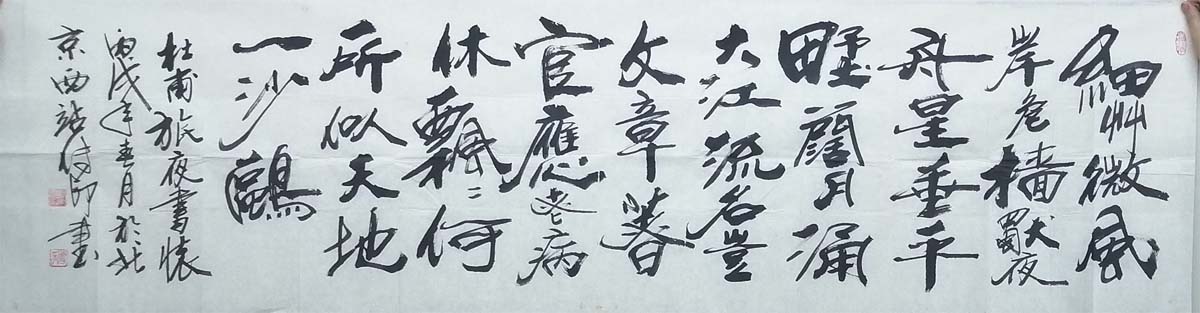 細艸微風
岸危檣獨夜
舟星垂平
野闊月涌
大江流名豈
文章著
官應老病
休飄〻何
所似天地
一沙鷗
杜甫旅夜書懷
丙戌年春月於北
京西站書